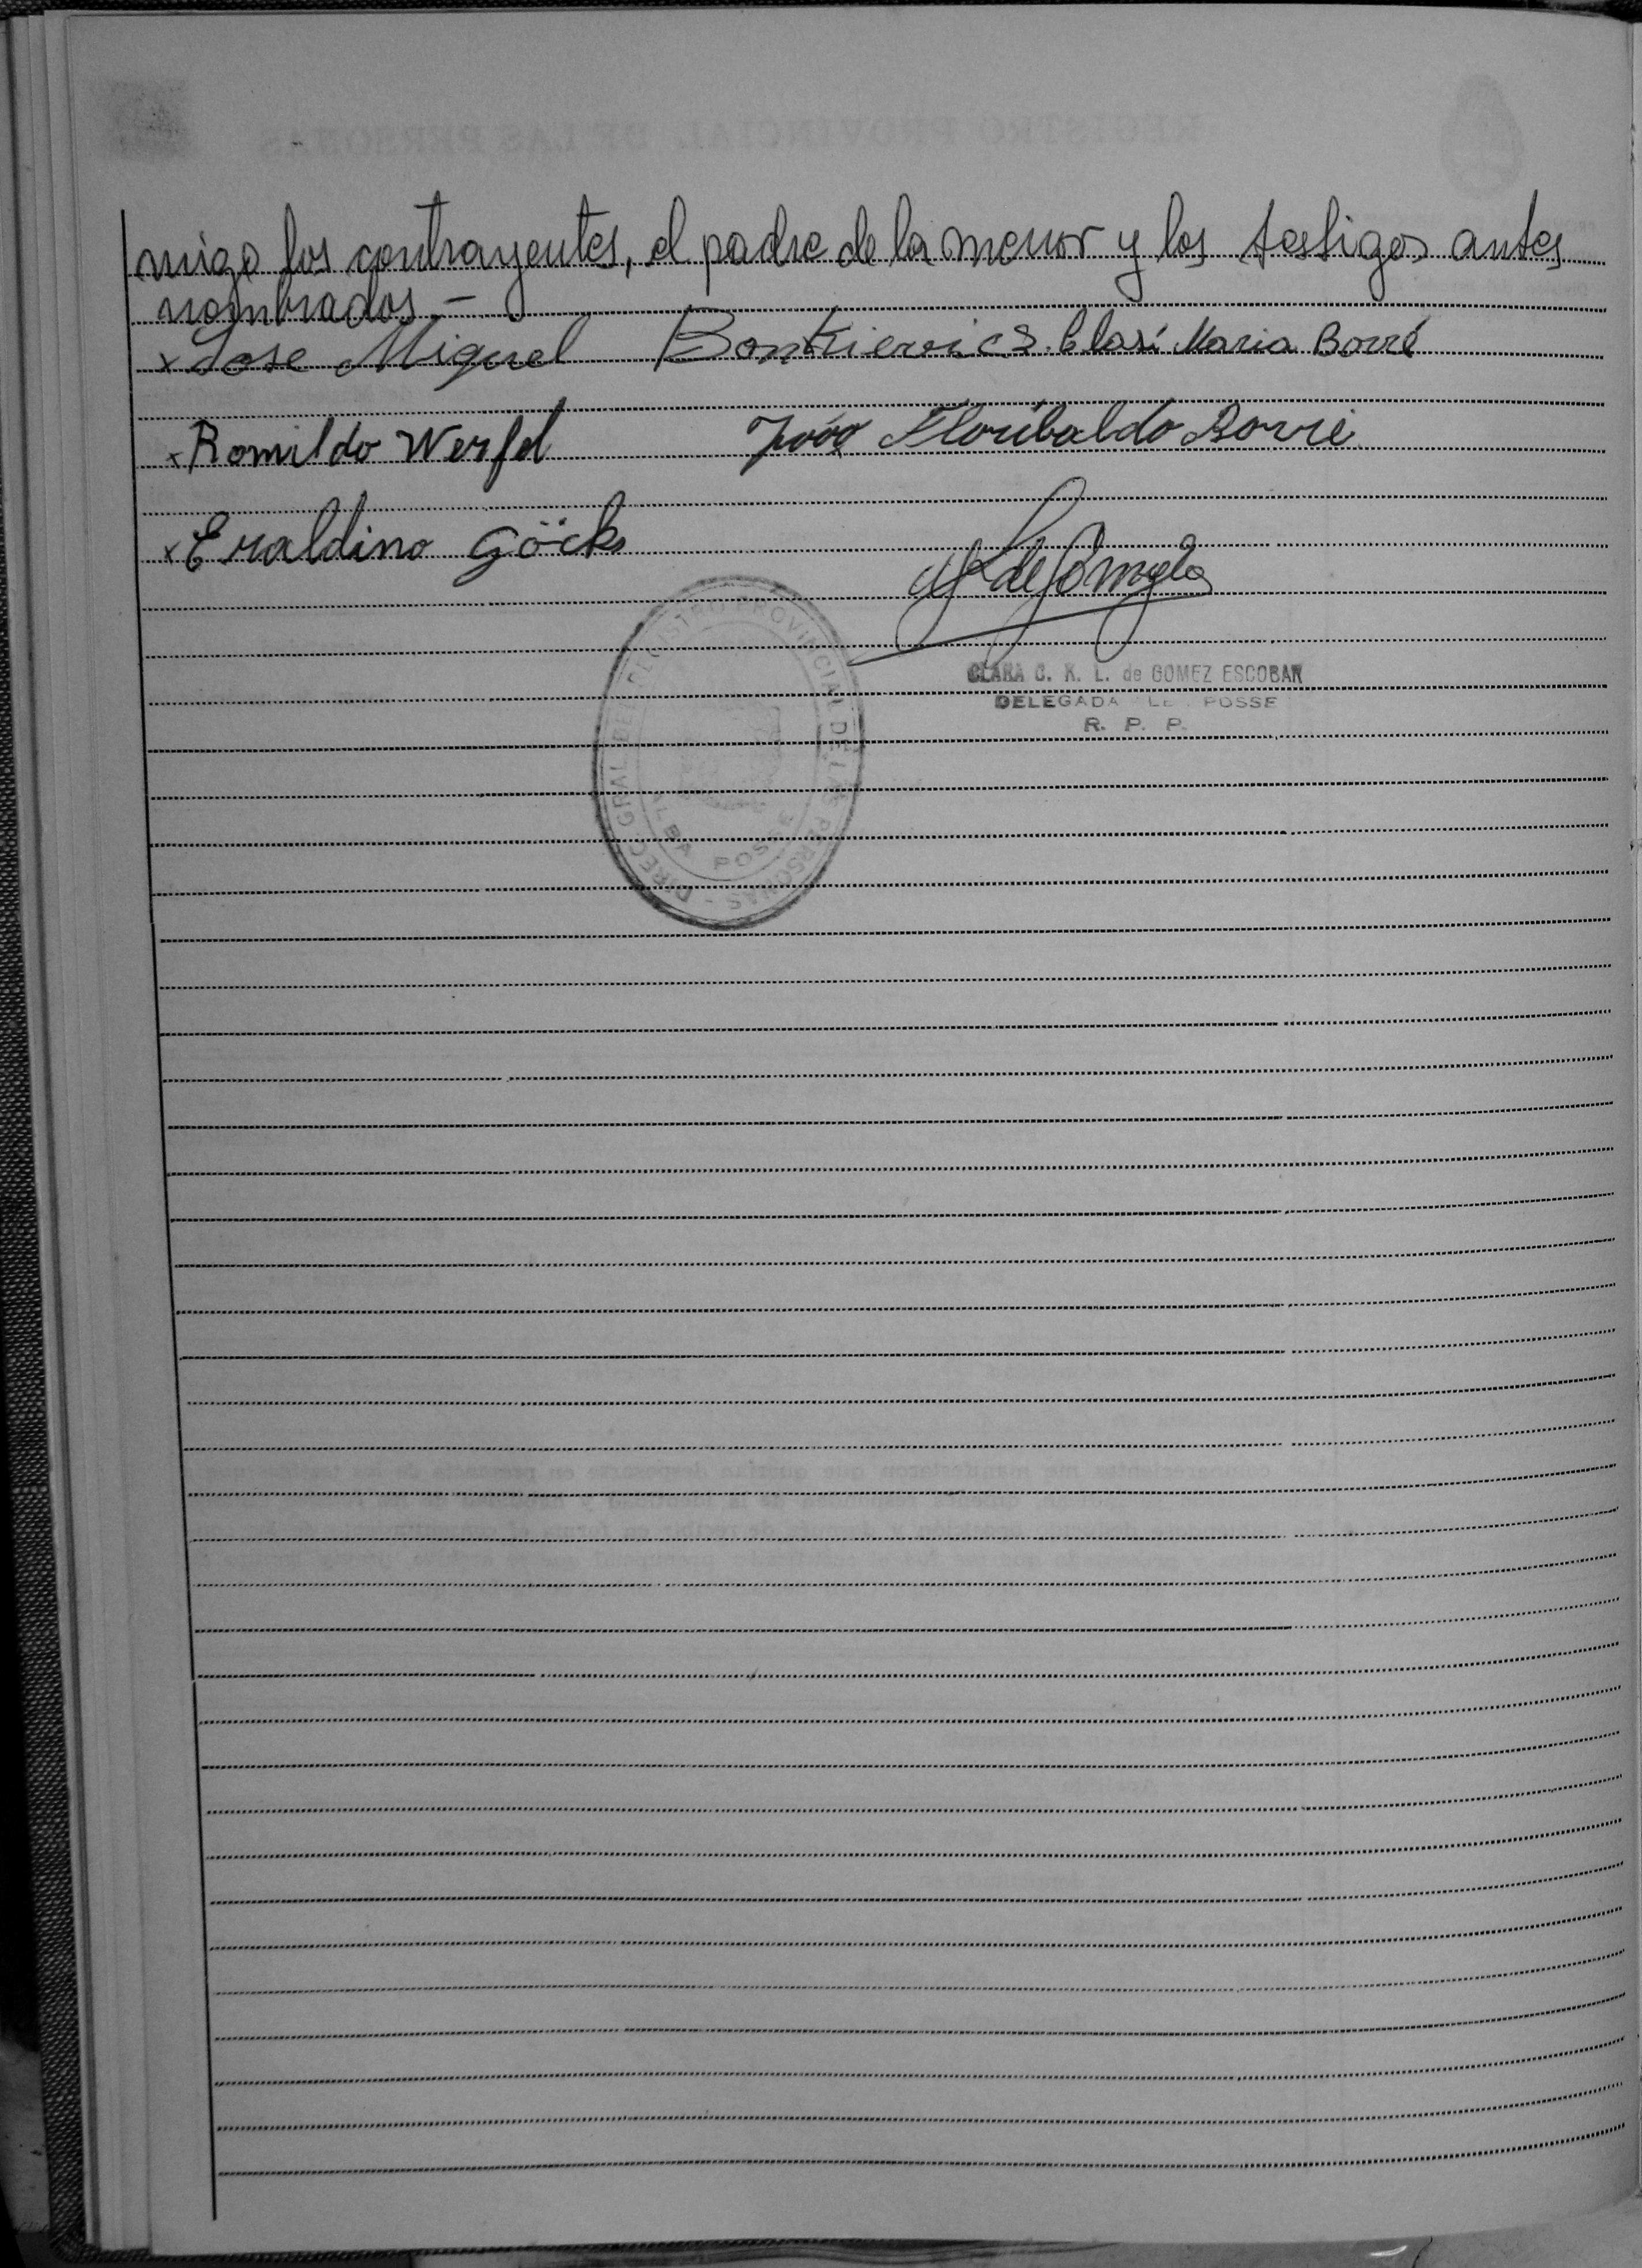 migo los contrayentes, el padre de la menor y los testigos antes
nombrados.-
x Jose Miguel Bonkievics. Clasí Maria Borré
x Romildo Werfel João Floribaldo Borré
x Eraldino Göcks
CLARA C. K. L. de GOMEZ ESCOBAR
DELEGADA POSSE
R. P. P.
DIREC. GRAL. DEL REGISTRO PROVINCIAL DE LAS PERSONAS -
ALBA POSSE